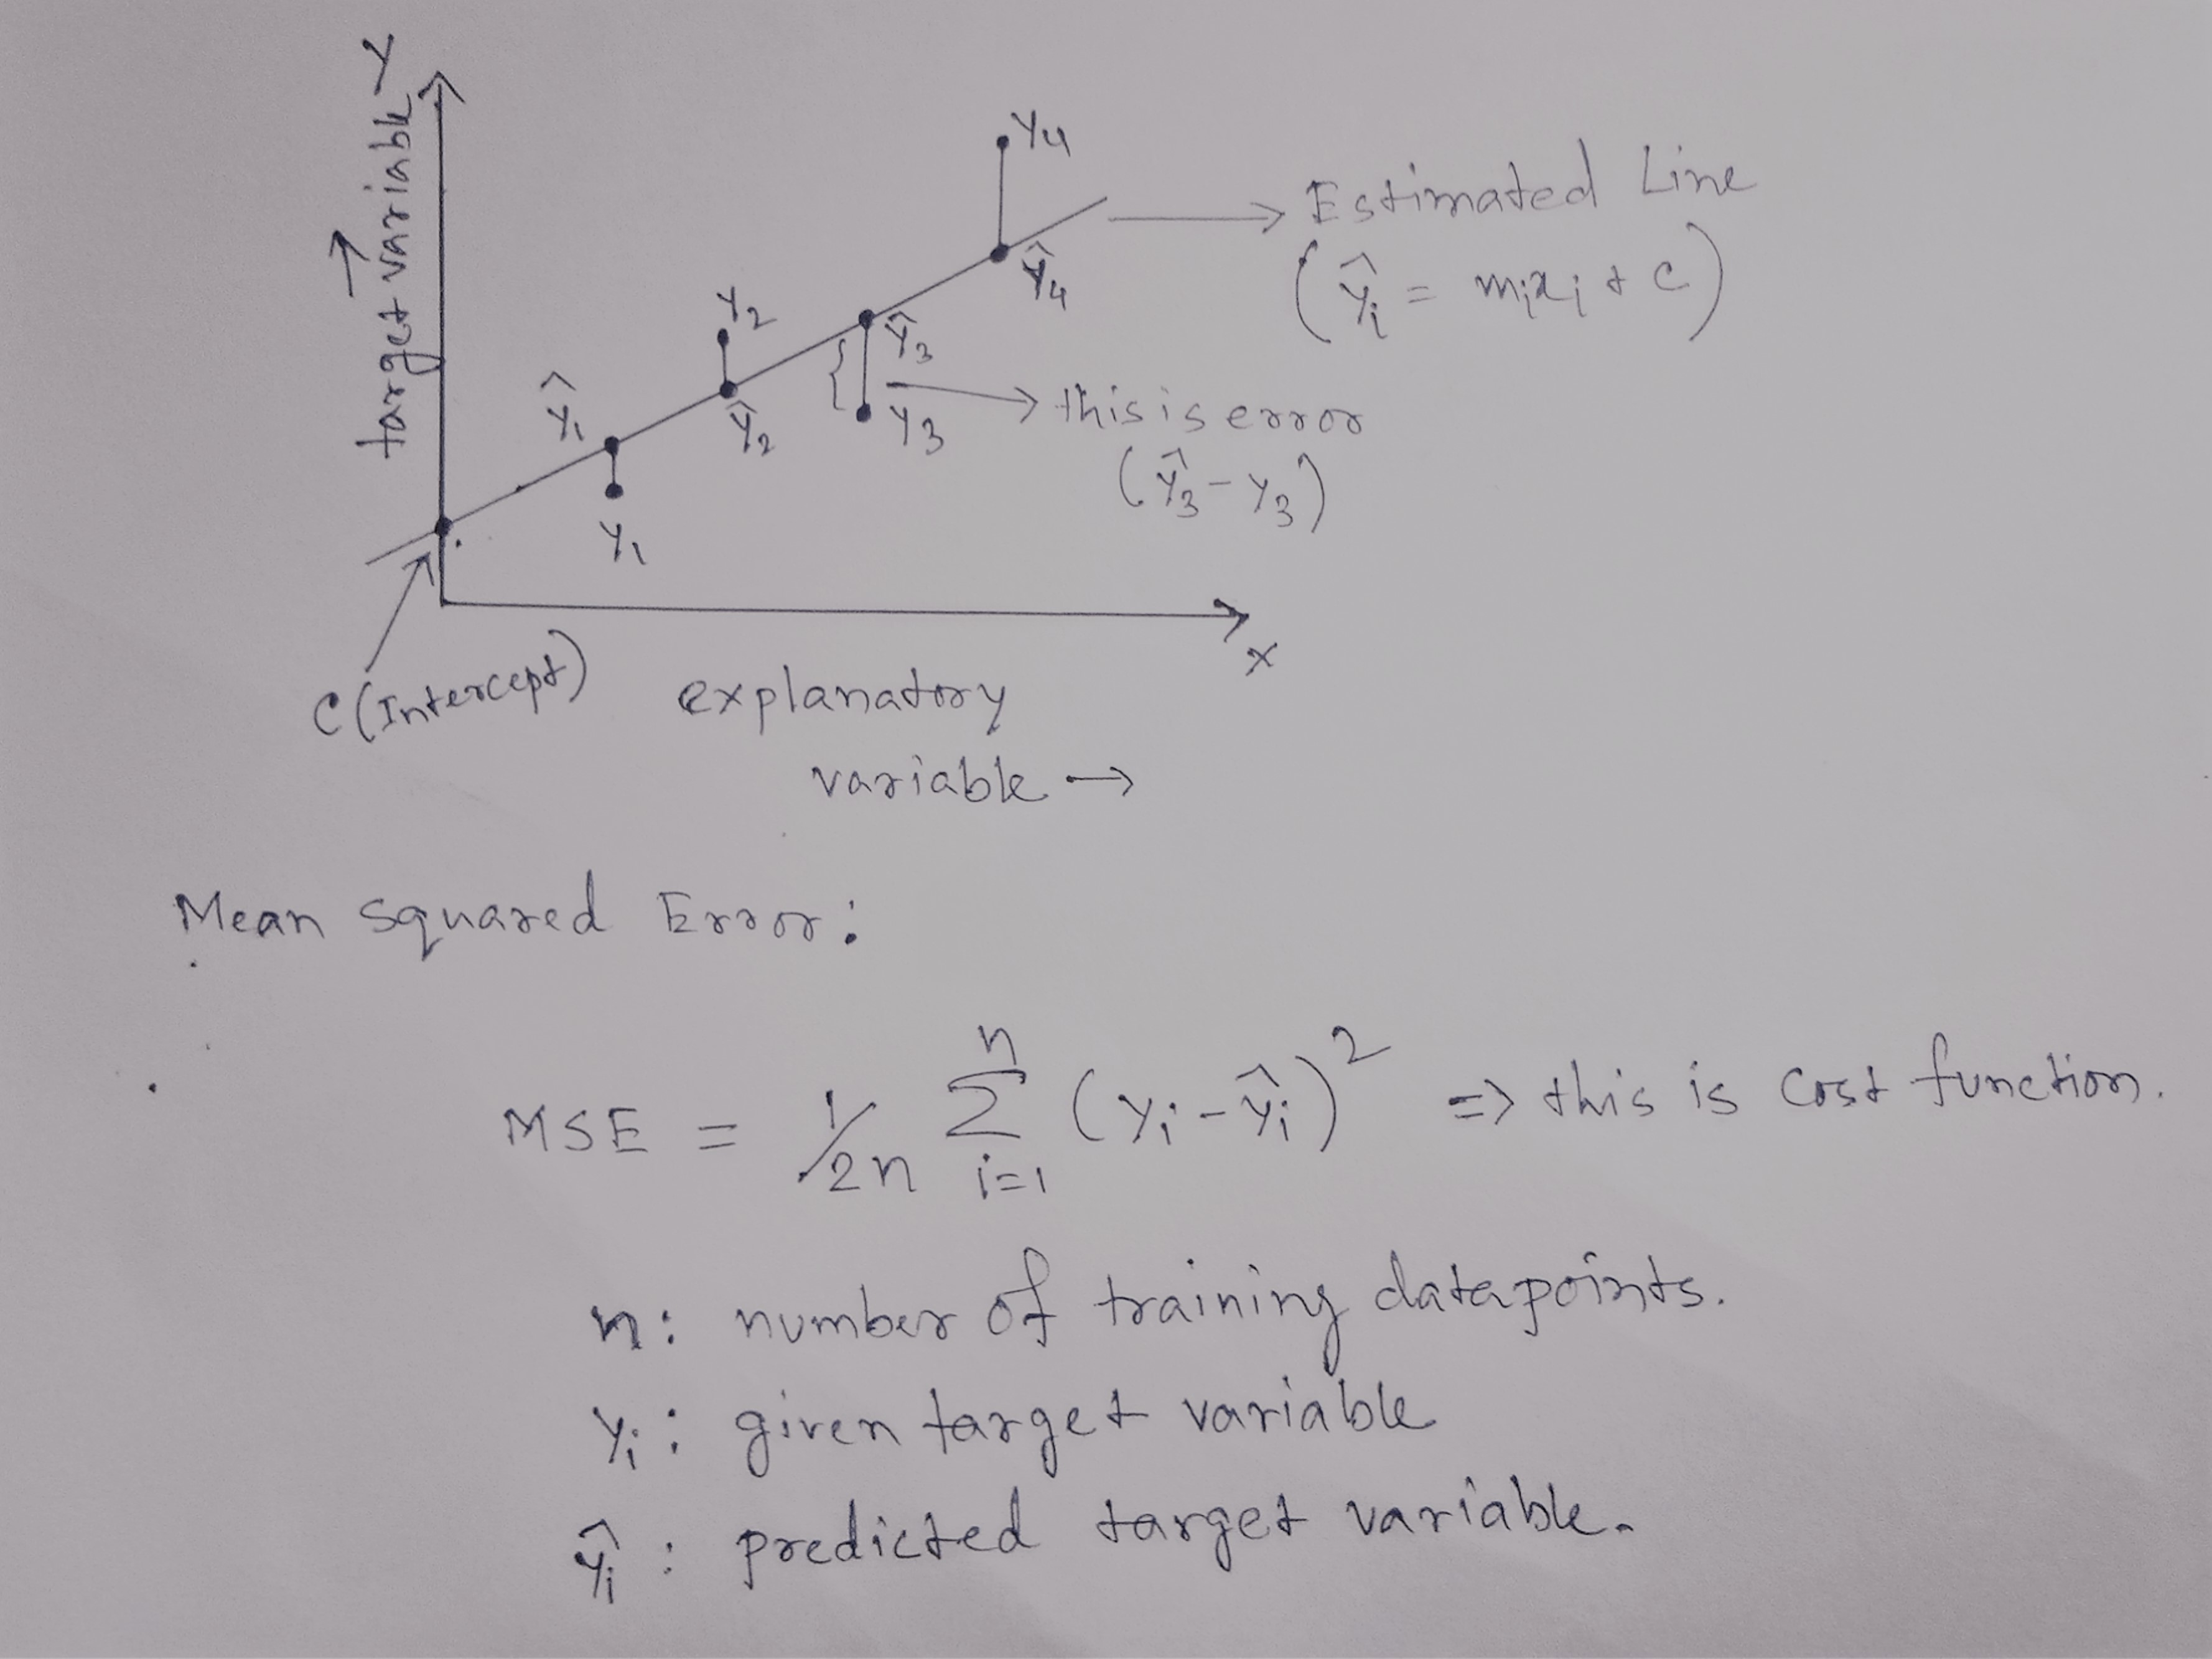 Y
target variable →
y4
ŷ4
→ Estimated Line
(ŷi = mixi + c)
y2
ŷ2
ŷ3
y3
ŷ1
y1
→ this is error
(ŷ3 - y3)
x
C (Intercept)
explanatory
variable →
Mean squared Error:
MSE = 1/2n n Σ i=1 (yi - ŷi)² => this is cost function.
n: number of training datapoints.
yi: given target variable
ŷi: predicted target variable.